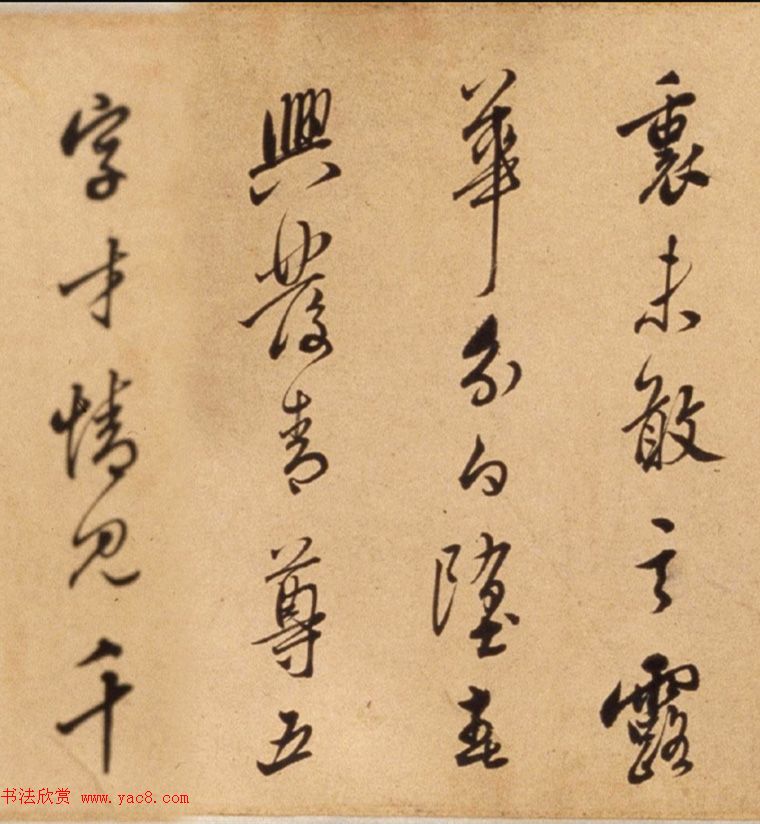 裏未敢言露
華分白墮春
興發青尊五
字才情見千
书法欣赏 www.yac8.com